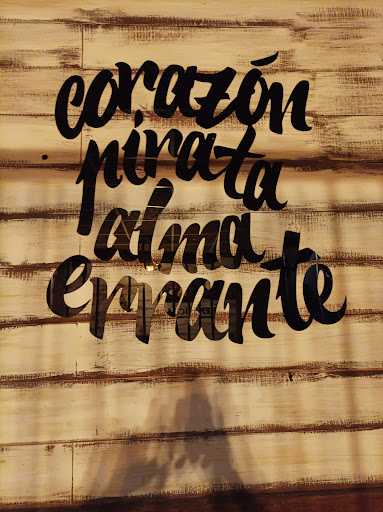 corazón
pirata
alma
errante